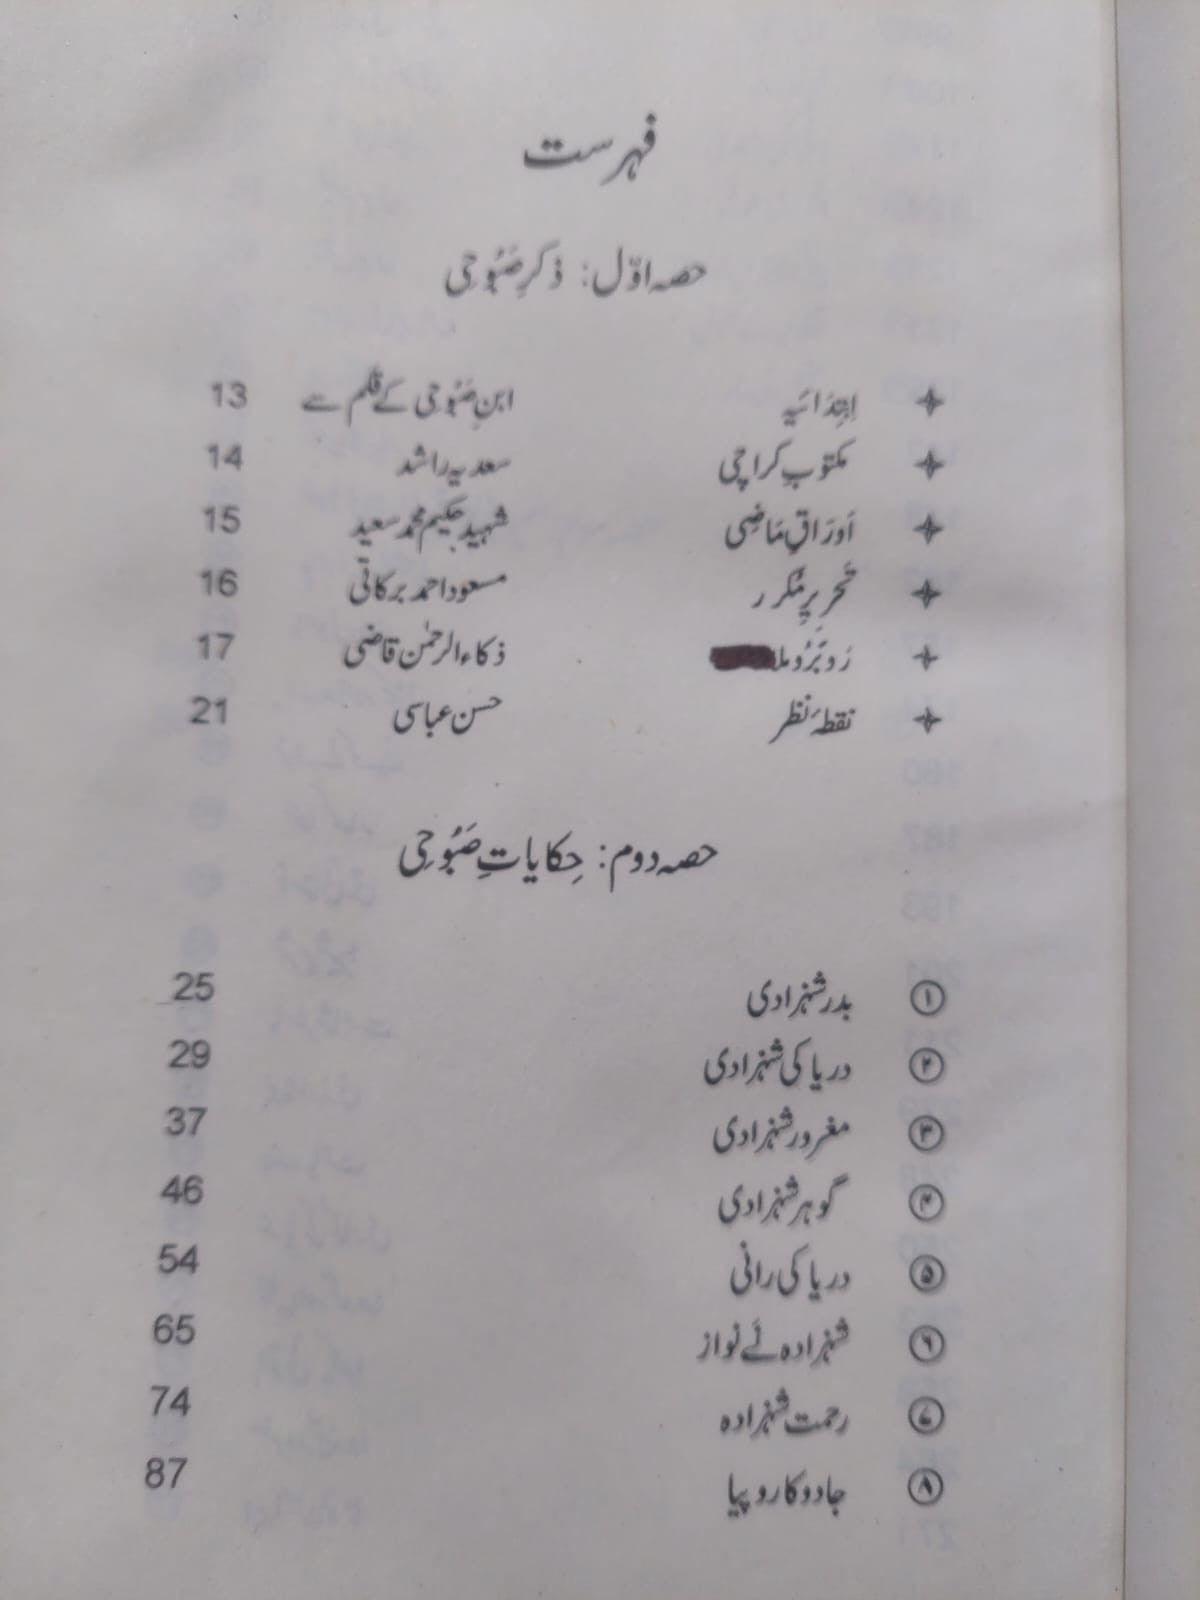 فہرست
حصہ اوّل: ذکرِ صَبُوحی
اِبتِدَائیہ ابنِ صَبُوحی کے قلم سے 13
مکتوبِ کراچی سعدیہ راشد 14
اَورَاقِ مَاضِی شہید حکیم محمد سعید 15
تحریرِ مُکرر مسعود احمد برکاتی 16
رُوبَرُو ذکاء الرحمٰن قاضی 17
نقطۂ نظر حسن عباسی 21
حصہ دوم: حِکایاتِ صَبُوحِی
۱ بدر شہزادی 25
۲ دریا کی شہزادی 29
۳ مغرور شہزادی 37
۴ گوہر شہزادی 46
۵ دریا کی رانی 54
۶ شہزادہ نَے نواز 65
۷ رحمت شہزادہ 74
۸ جادو کا روپیا 87